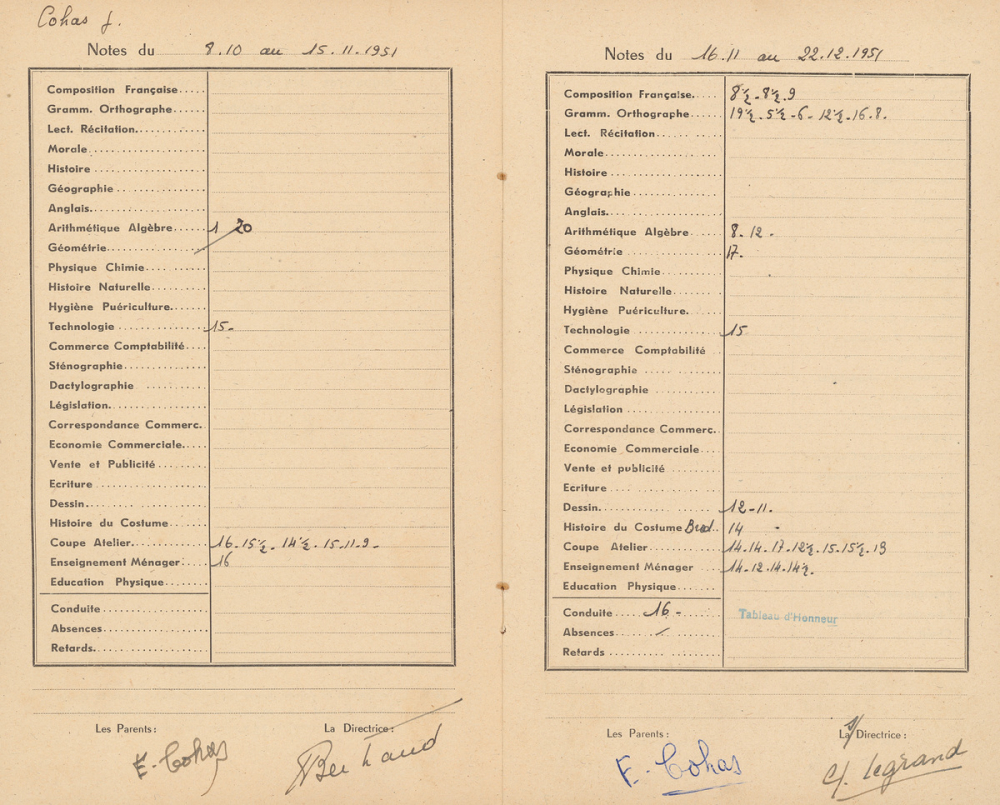 Cohas J.
Notes du 8.10 au 15.11.1951
Composition Française.....
Gramm. Orthographe......
Lect. Récitation............
Morale....................
Histoire ..................
Géographie ...............
Anglais....................
Arithmétique Algèbre...... 1 20
Géométrie.................
Physique Chimie...........
Histoire Naturelle..........
Hygiène Puériculture.......
Technologie ............... 15-
Commerce Comptabilité....
Sténographie..............
Dactylographie ............
Législation.................
Correspondance Commerc.
Economie Commerciale.....
Vente et Publicité .........
Ecriture ...................
Dessin.....................
Histoire du Costume.......
Coupe Atelier.............. 16.15½. 14½. 15.11.9-
Enseignement Ménager..... 16
Education Physique........
Conduite ..................
Absences..................
Retards....................
Les Parents :
La Directrice :
E. Cohas
Notes du 16.11 au 22.12.1951
Composition Française..... 8½-8½.9
Gramm. Orthographe...... 19½.5½-6-12½.16.8.
Lect. Récitation............
Morale....................
Histoire ..................
Géographie ...............
Anglais....................
Arithmétique Algèbre...... 8.12.
Géométrie ................. 17.
Physique Chimie...........
Histoire Naturelle..........
Hygiène Puériculture.
Technologie ............... 15
Commerce Comptabilité ..
Sténographie ..............
Dactylographie ............
Législation ................
Correspondance Commerc..
Economie Commerciale....
Vente et publicité .........
Ecriture ...................
Dessin..................... 12-11.
Histoire du Costume Brod.. 14
Coupe Atelier ............. 14.14.17.12½.15.15½.13
Enseignement Ménager .... 14.12.14.14½.
Education Physique........
Conduite .... 16-
Tableau d'Honneur
Absences ...
Retards ...................
Les Parents :
La Directrice :
E. Cohas
legrand